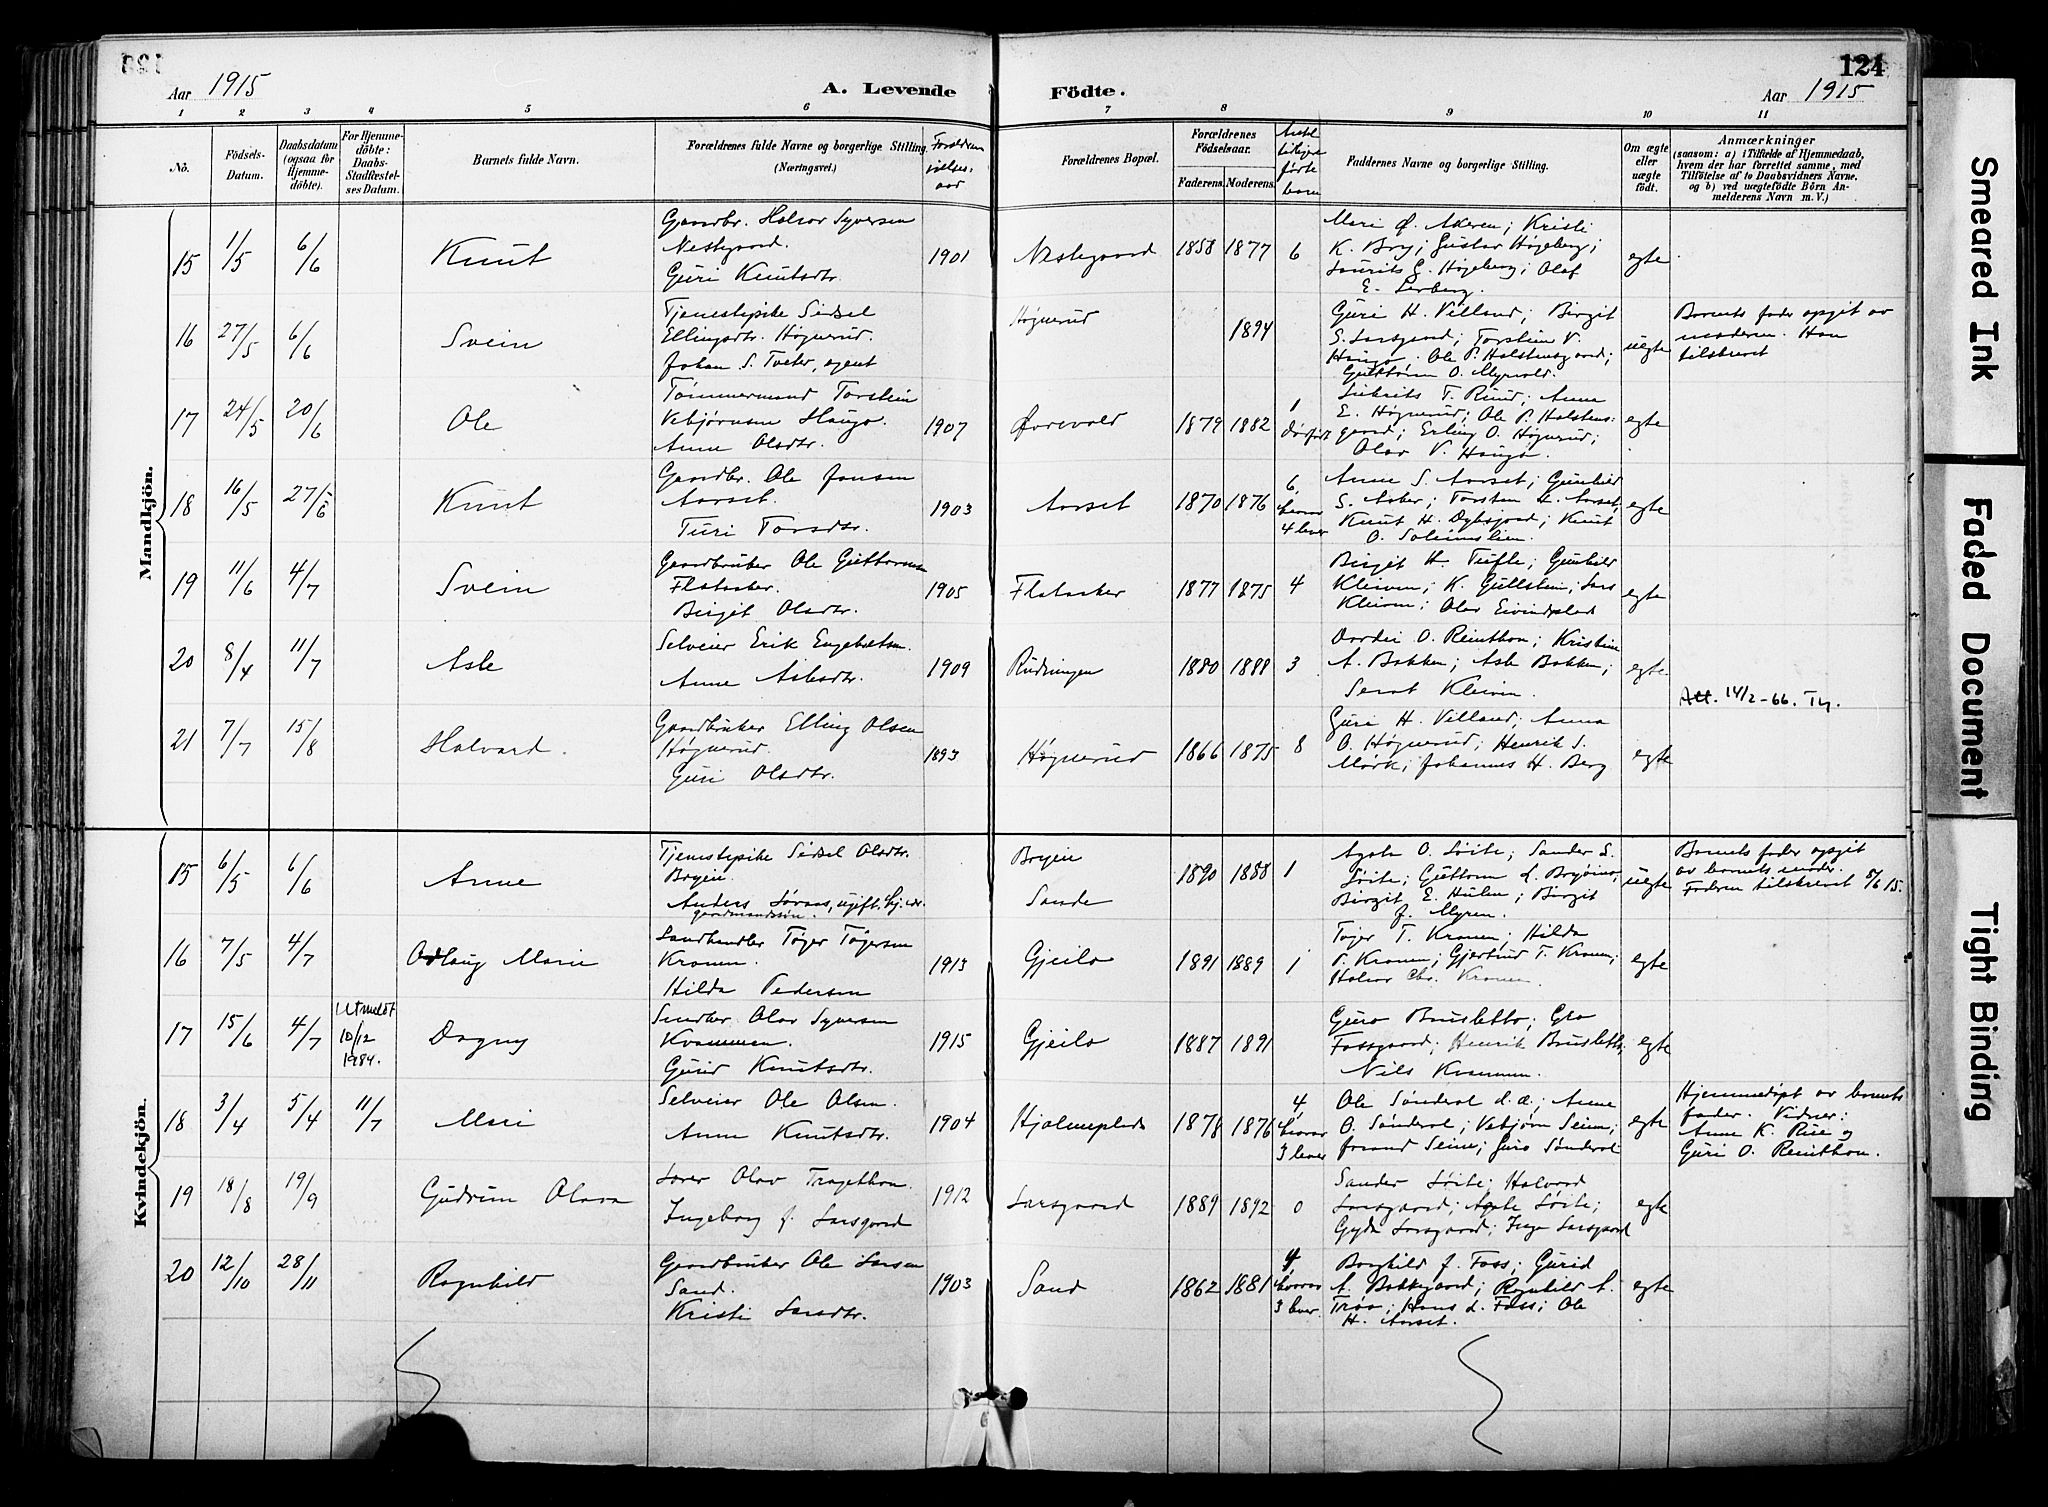 124
Aar 1915
A. Levende Födte.
Aar 1915
1 2 3 4 5 6 7 8 9 10 11
No.
Födsels-
Datum.
Daabsdatum
(ogsaa for
Hjemme-
döbte).
For Hjemme-
döbte:
Daabs-
Stadfæstel-
ses Datum.
Barnets fulde Navn.
Forældrenes fulde Navne og borgerlige Stilling
(Næringsvei.)
Forældrenes Bopæl.
Forældrenes
Födselsaar.
Faderens. Moderens.
Faddernes Navne og borgerlige Stilling.
Om ægte
eller
uægte
födt.
Anmærkninger
(saasom: a) i Tilfælde af Hjemmedaab,
hvem der har forrettet samme, med
Tilföielse af to Daabsvidners Navne,
og b) ved uægtefödte Börn An-
melderens Navn m. V.)
Mandkjön.
15 1/5 6/6 Knut
Gaardbr. Halvor Syversen
Nestegaard.
Guri Knutsdtr.
1901 Nestegaard 1858 1877 6
Mari Ø. Akeren; Kristi
K. Bry; Gustav Høgeberg;
Laurits G. Høgeberg; Olaf
E. Lerberg.
egte
16 27/5 6/6 Svein
Tjenestepike Sidsel
Ellingsdtr. Høgnerud.
Johan S. Tveter, agent
Høgnerud 1894
Guri H. Villand; Birgit
S. Larsgaard; Torstein V.
Haugo. Ole P. Halstensgaard;
Guttorm O. Myrvold.
uegte
Barnets fader opgit av
moderen. Han
tilskrevet
17 24/5 20/6 Ole
Tømmermand Torstein
Vebjørnsen Haugo.
Anne Olsdtr.
1907 Ørevold 1879 1882 1
dødfødt
T. Ruud; Anne
E. Høgnerud; Ole P. Halstens-
gaard; Erling O. Høgnerud;
Olav V. Haugo.
egte
18 16/5 27/6 Knut
Gaardbr. Ole Jonsen
Aarset.
Turi Torsdtr.
1903 Aarset 1870 1876 6,
hvorav
4 lever
Anne S. Aarset; Gunhild
S. Aaker; Torsten L. Aarset,
Knut H. Dybsjord; Knut
O. Soleimslien.
egte
19 11/6 4/7 Svein
Gaardbruker Ole Guttormsen
Flataaker.
Birgit Olsdtr.
1905 Flataaker 1877 1875 4
Birgit H. Tufte; Gunhild
Kleiven; K. Gullstein; Lars
Kleiven; Olav Eivindsplads
egte
20 8/4 11/7 Asle
Selveier Erik Engebretsen.
Anne Aslesdtr.
1909 Rudningen 1880 1888 3
O. Reinthon; Kristine
A. Bakken; Asle Bakken;
Kleiven.
egte
Att. 14/2-66. Th.
21 7/7 15/8 Halvard.
Gaardbruker Elling Olsen
Høgnerud.
Guri Olsdtr.
1893 Høgnerud 1866 1875 8
Guri H. Villand; Anna
O. Høgnerud; Henrik S.
Mørk; Johannes H. Berg
egte
Kvindekjön.
15 6/5 6/6 Anne
Tjenestepike Sidsel Olsdtr.
Bryen.
gaardmandssøn.
Bryen
Sande
1890 1888 1
Agate O. Løite; Sander S.
Løite; Guttorm L.
Birgit E. Hulen; Birgit
J. Myren.
uegte
Barnets fader opgit
av barnets moder.
Faderen tilskrevet 5/6 15.
16 7/5 4/7 Odlaug Marie
Landhandler Tøger Tøgersen
Kronen.
Hilda Pedersen
1913 Gjeilo 1891 1889 1
Tøger T. Kronen; Hilda
P. Kronen; Gjertrud T. Kronen;
Halvor Chr. Kronen
egte
17 15/6 4/7
Utmeldt
10/12
1984.
Dagny
Landhr. Olav Syversen
Kvammen.
Gurid Knutsdtr.
1915 Gjeilo 1887 1891
Guro Brusletto; Gro
Fossgaard; Henrik Brusletto,
Nils Kvammen.
egte
18 3/4 5/4 11/7 Mari
Selveier Ole Olsen.
Anne Knutsdtr.
1904 Hjalmeplads 1878 1876 4,
hvorav
3 lever
Ole Sønderol d.æ.; Anne
O. Sønderol; Vebjørn Seim;
Jorand Seim; Guro Sønderol
egte
Hjemmedøpt av barnets
fader. Vidner:
Anne K. Rue og
Guri O. Reinthon.
19 18/8 19/9 Gudrun Olava
Lærer Olav Tragethon.
Ingeborg J. Larsgaard
1912 Larsgaard 1889 1892 0
Sander Løite; Halvard
Larsgaard; Agate Løite;
Gyda Larsgaard; Inga Larsgaard
egte
20 12/10 28/11 Ragnhild
Gaardbruker Ole Larsen
Sand.
Kristi Larsdtr.
1903 Sand 1862 1881 4,
hvorav
3 lever
Borghild J. Foss; Gurid
A. Bakkegaard; Ragnhild A.
Trøo; Hans L. Foss; Ole
H. Aarset.
egte
Smeared Ink
Faded Document
Tight Binding